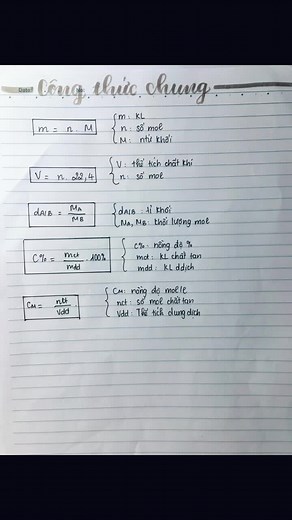 Date:
Công thức chung
m = n . M
m : KL
n : số mol
M : ntử khối
V = n . 22,4
V : thể tích chất khí
n : số mol
dA/B = MA / MB
dA/B : tỉ khối
MA, MB : khối lượng mol
C% = mct / mdd . 100%
C% : nồng độ %
mct : KL chất tan
mdd : KL ddịch
CM = nct / Vdd
CM : nồng độ mol/l
nct : số mol chất tan
Vdd : Thể tích dung dịch